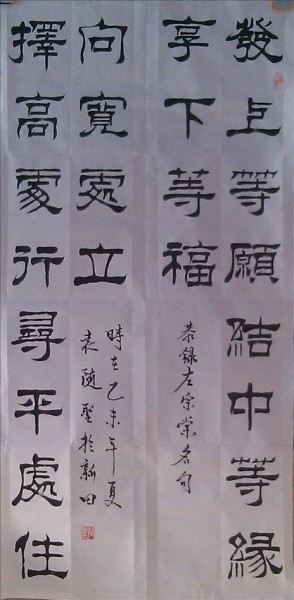 發上等願結中等緣
享下等福
恭録左宗棠名句
擇高處行尋平處住
向寬處立
時在乙未年夏
袁随聖於新田